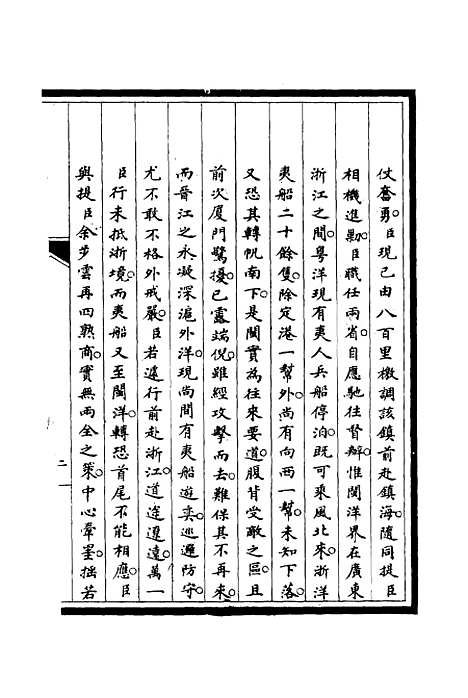 仗奮勇。臣現已由八百里檄調該鎮前赴鎮海。隨同提臣
相機進勦。臣職任兩省。自應馳往督辦。惟閩洋界在廣東
浙江之間。粵洋現有夷人兵船停泊。既可乘風北來。浙洋
夷船二十餘隻。除定港一幫外。尚有向西一幫。未知下落。
又恐其轉帆南下。是閩實為往來要道。腹背受敵之區。且
前次廈門驚擾。已露端倪。雖經攻擊而去。難保其不再來。
而晉江之永凝深滬外洋。現尚間有夷船遊奕。巡邏防守。
尤不敢不格外戒嚴。臣若遽行前赴浙江。道途遥遠。萬一
臣行未抵浙境。而夷船又至閩洋。轉恐首尾不能相應。臣
與提臣余步雲再四熟商。實無兩全之策。中心牽罣。措若
二